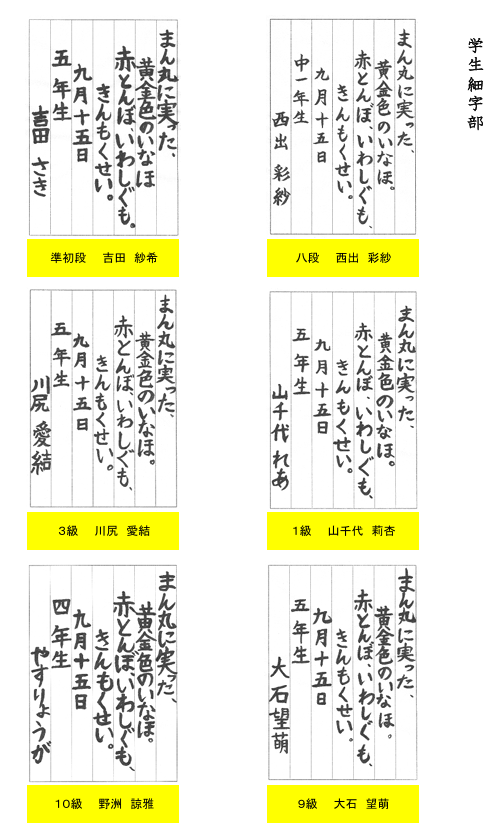 学生細字部
まん丸に実った、
黄金色のいなほ。
赤とんぼ、いわしぐも、
きんもくせい。
九月十五日
中一年生
西出 彩紗
八段 西出 彩紗
まん丸に実った、
黄金色のいなほ
赤とんぼ、いわしぐも。
きんもくせい。
九月十五日
五年生
吉田 さき
準初段 吉田 紗希
まん丸に実った、
黄金色のいなほ。
赤とんぼ、いわしぐも、
きんもくせい。
九月十五日
五年生
山千代 れあ
1級 山千代 莉杏
まん丸に実った、
黄金色のいなほ。
赤とんぼ、いわしぐも、
きんもくせい。
九月十五日
五年生
川尻 愛結
3級 川尻 愛結
まん丸に実った、
黄金色のいなほ。
赤とんぼ、いわしぐも、
きんもくせい。
九月十五日
五年生
大石望萌
9級 大石 望萌
まん丸に実った、
黄金色のいなほ。
赤とんぼ、いわしぐも、
きんもくせい。
九月十五日
四年生
やすりょうが
10級 野洲 諒雅